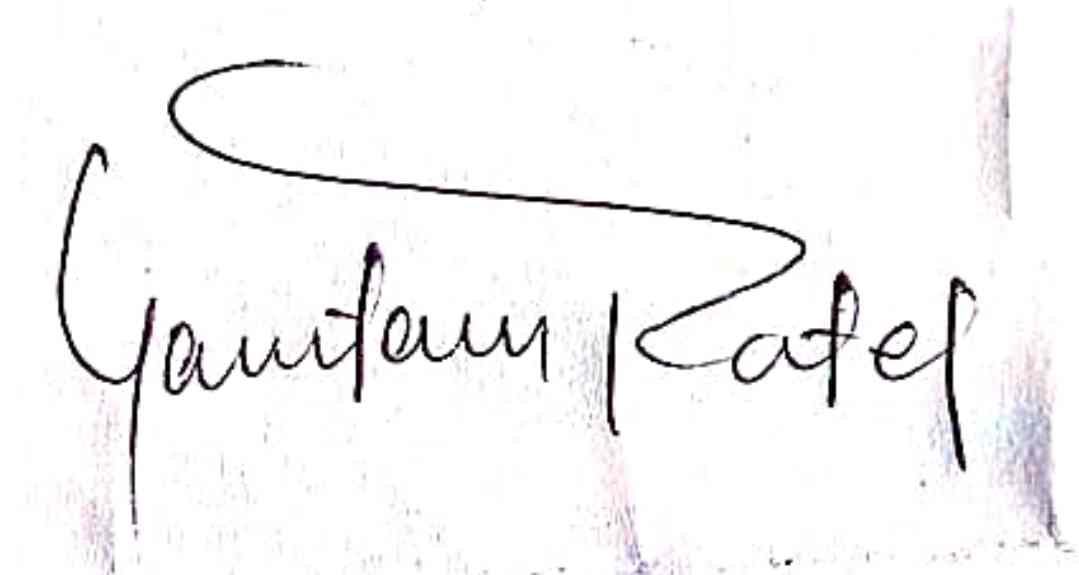 Gautam Patel